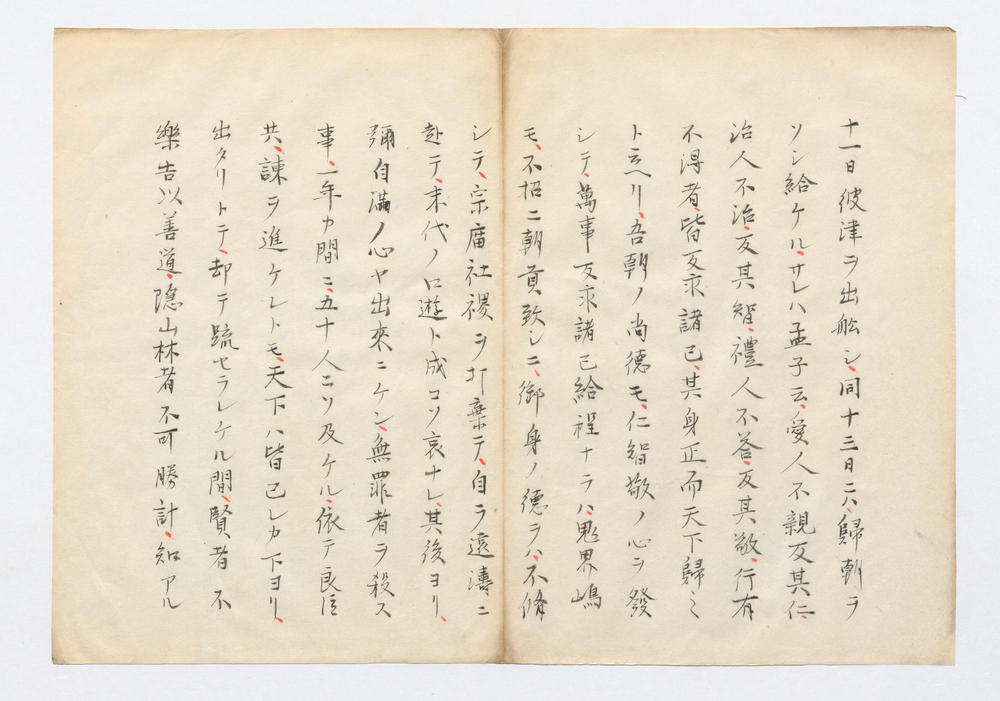 十一日彼津ヲ出舩シ、同十三日ニハ、歸朝ヲ
ソシ給ケル、サレハ孟子云、愛人不親反其仁、
治人不治、反其智、禮人不答、反其敬、行有
不得者、皆反求諸己、其身正而天下歸之
ト云ヘリ、吾朝ノ尚德モ、仁智敬ノ心ヲ發
シテ、萬事反求諸己給程ナラハ、鬼界嶋
モ、不招ニ朝貢致シニ、御身ノ德ヲハ、不脩
シテ、宗廟社稷ヲ打棄テ、自ラ遠濤ニ
赴テ、末代ノ口遊ト成コソ哀ナレ、其後ヨリ、
彌自滿ノ心ヤ出來ニケン、無罪者ヲ殺ス
事、一年カ間ニ、五十人ニソ及ケル、依テ良臣
共、諫ヲ進ケレトモ、天下ハ皆己レカ下ヨリ、
出タリトテ、却テ疏セラレケル間、賢者不
樂告以善道、隱山林者不可勝計、知アル